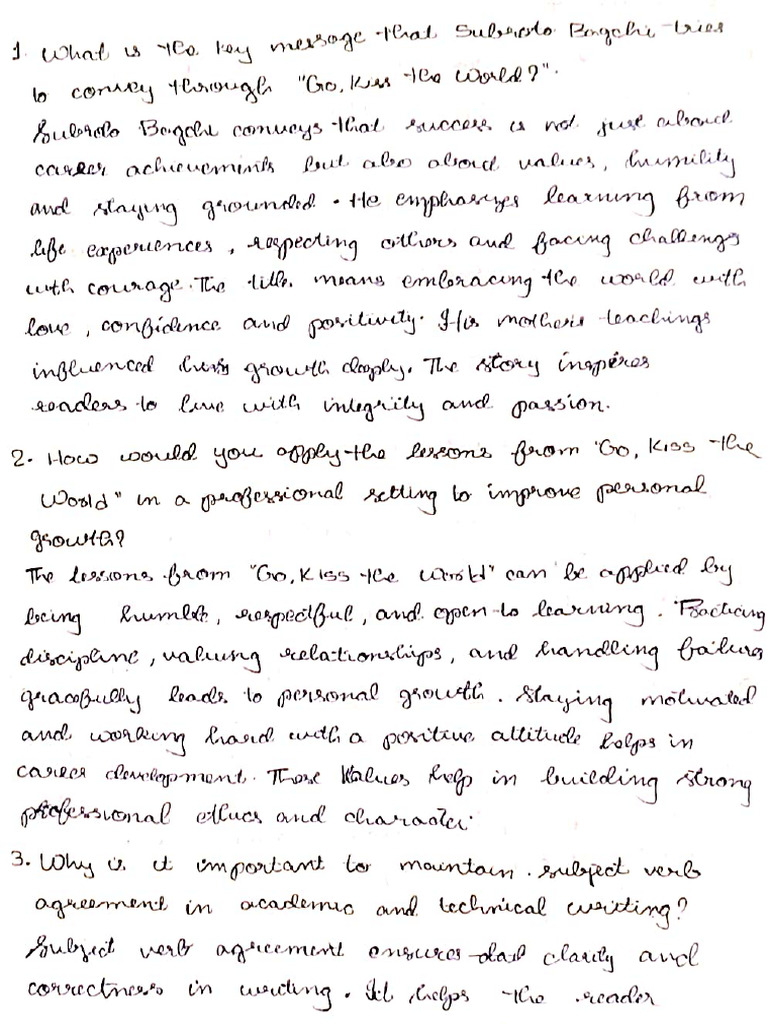 1. What is the key message that Subroto Bagchi tries
to convey through "Go, Kiss the World?".
Subroto Bagchi conveys that success is not just about
career achievements but also about values, humility
and staying grounded. He emphasizes learning from
life experiences, respecting others and facing challenges
with courage. The title means embracing the world with
love, confidence and positivity. His mother's teachings
influenced growth deeply. The story inspires
readers to live with integrity and passion.
2. How would you apply the lessons from "Go, Kiss the
World" in a professional setting to improve personal
growth?
The lessons from "Go, Kiss the World" can be applied by
being humble, respectful, and open to learning. Practicing
discipline, valuing relationships, and handling failure
gracefully leads to personal growth. Staying motivated
and working hard with a positive attitude helps in
career development. These values help in building strong
professional ethics and character.
3. Why is it important to maintain subject verb
agreement in academic and technical writing?
Subject verb agreement ensures clarity and
correctness in writing. It helps the reader